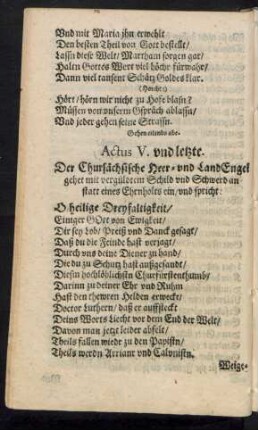 Vnd mit Maria jhn erwehlt
Den besten Theil von Gott bestellt/
Lassn diese Welt/ Martham sorgen gar/
Haltn Gottes Wort viel höchr fürwahr/
Dann viel tausent Schätz Goldes klar.
(Horcht:)
Hört/ hörn wir nicht zu Hofe blasn?
Müssen von vnserm Gspräch ablassn/
Vnd jeder gehen seine Strassn.
Gehen eilends abe.
Actus V. vnd letzte.
Der Churfächsische Heer- vnd LandEngel
gehet mit vergüldetem Schild vnd Schwerd an
statt eines Ehrnholts ein/ vnd spricht:
O heilige Dreyfaltigkeit/
Einiger GOtt von Ewigkeit/
Dir sey Lob/ Preiß vnd Danck gesagt/
Daß du die Feinde hast verjagt/
Durch vns deine Diener zu hand/
Die du zu Schutz hast außgesandt/
Diesm hochlöblichstn Churfürstenthumb/
Darinn zu deiner Ehr vnd Ruhm
Hast den thewren Helden erweckt/
Doctor Luthern/ daß er auffsteckt
Deins Worts Liecht vor dem End der Welt/
Davon man jetzt leider abfelt/
Theils fallen wiedr zu den Papistn/
Theils werdn Arriani vnd Calvinistn.
Weige-